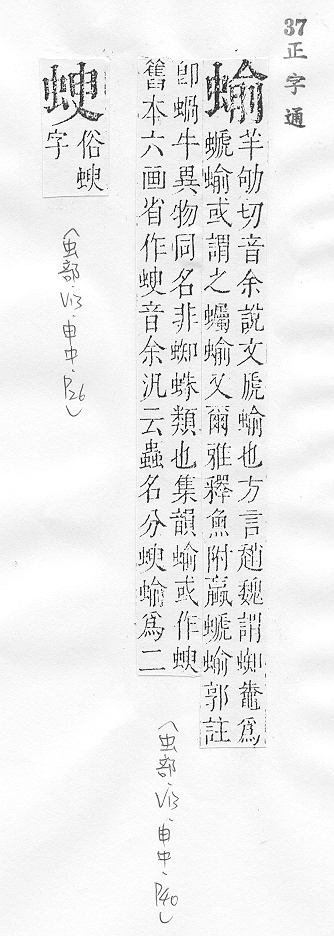 37 正字通
蝓
羊劬切音余說文虒蝓也方言趙魏謂蜘鼄爲
螔蝓或謂之蠾蝓又爾雅釋魚附蠃螔蝓郭註
卽蝸牛異物同名非蜘蛛類也集韻蝓或作
舊本六画省作音余汎云蟲名分蝓爲二
(虫部·V13·申中·P40)
俗
字
(虫部·V13·申中·P26)